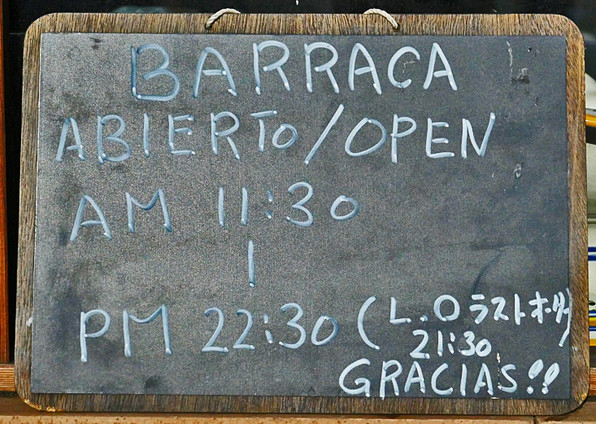 BARRACA
ABIERTO/OPEN
AM 11:30
|
PM 22:30 (L.O ラストオーダー)
21:30
GRACIAS!!